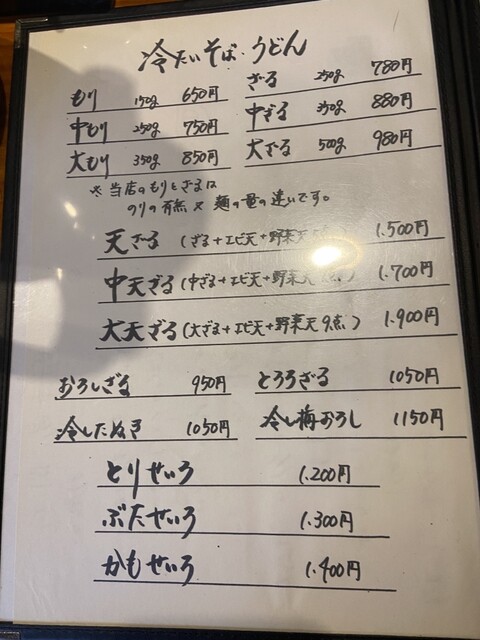 冷たいそば・うどん
もり 150g 650円
ざる 250g 780円
中もり 250g 750円
中ざる 350g 880円
大もり 350g 850円
大ざる 500g 980円
※当店のもりとざるは
のりの有無 × 麺の量の違いです。
天ざる (ざる+エビ天+野菜天 ) 1.500円
中天ざる (中ざる+エビ天+野菜天 ) 1.700円
大天ざる (大ざる+エビ天+野菜天 9点) 1.900円
おろしざる 950円
とろろざる 1050円
冷したぬき 1050円
冷し梅おろし 1150円
とりせいろ 1.200円
ぶたせいろ 1.300円
かもせいろ 1.400円